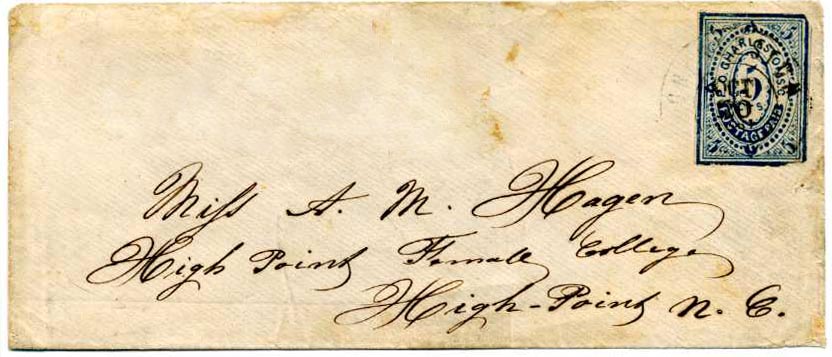 5 5
P.O. CHARLESTON. S.C.
5
OCT
POSTAGE PAID
5 5
Miss A. M. Hagen
High Point Female College
High-Point N. C.